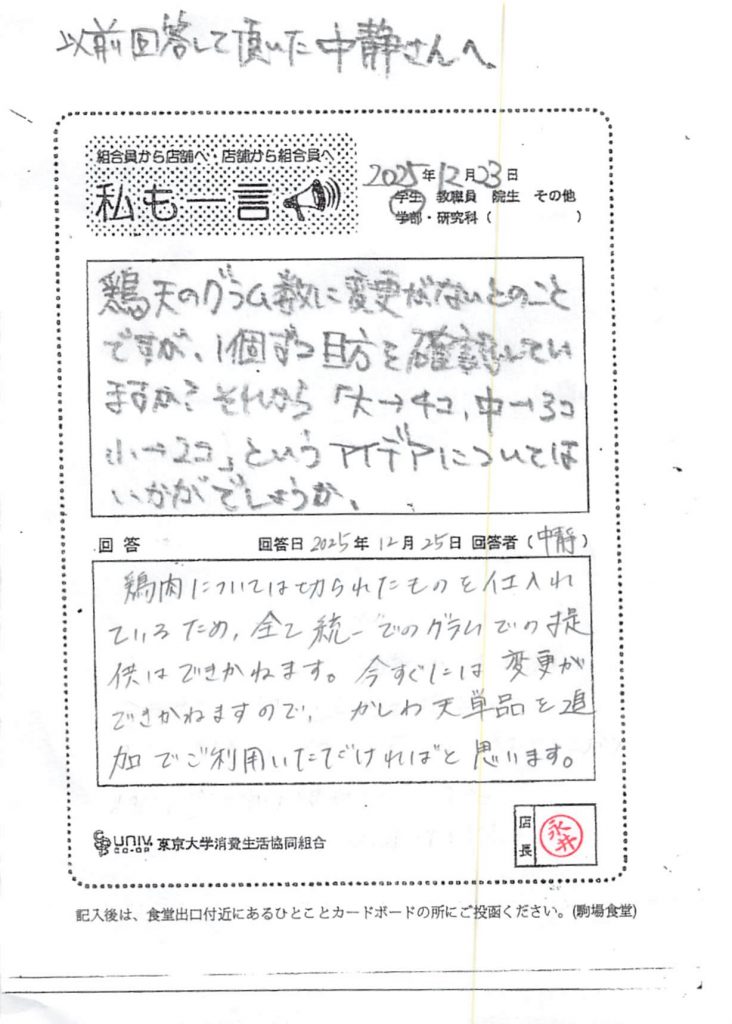 以前回答して頂いた中静さんへ。
組合員から店舗へ・店舗から組合員へ
私も一言
2025年12月23日
学生 教職員 院生 その他
学部・研究科（　　　　　）
鶏天のグラム数に変更がないとのこと
ですが、1個ずつ目方を確認してい
ますか？それから「大→4コ,中→3コ
小→2コ」というアイデアについては
いかがでしょうか。
回答 回答日2025年12月25日 回答者（中静）
鶏肉については切られたものを仕入れ
ているため、全て統一でのグラムでの提
供はできかねます。今すぐには変更が
できかねますので、かしわ天単品を追
加でご利用いただければと思います。
UNIV.
CO-OP 東京大学消費生活協同組合
店長 永井
記入後は、食堂出口付近にあるひとことカードボードの所にご投函ください。(駒場食堂)